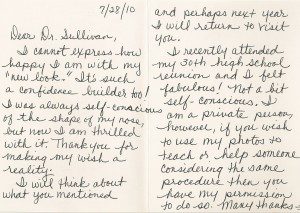 7/28/10
Dear Dr. Sullivan,
I cannot express how
happy I am with my
"new look." It's such
a confidence builder too!
I was always self-conscious
of the shape of my nose,
but now I am thrilled
with it. Thank you for
making my wish a
reality.
I will think about
what you mentioned
and perhaps next year
I will return to visit
you.
I recently attended
my 30th high school
reunion and I felt
fabulous! Not a bit
self-conscious. I
am a private person,
however, if you wish
to use my photos to
teach or help someone
considering the same
procedure then you
have my permission
to do so. Many thanks